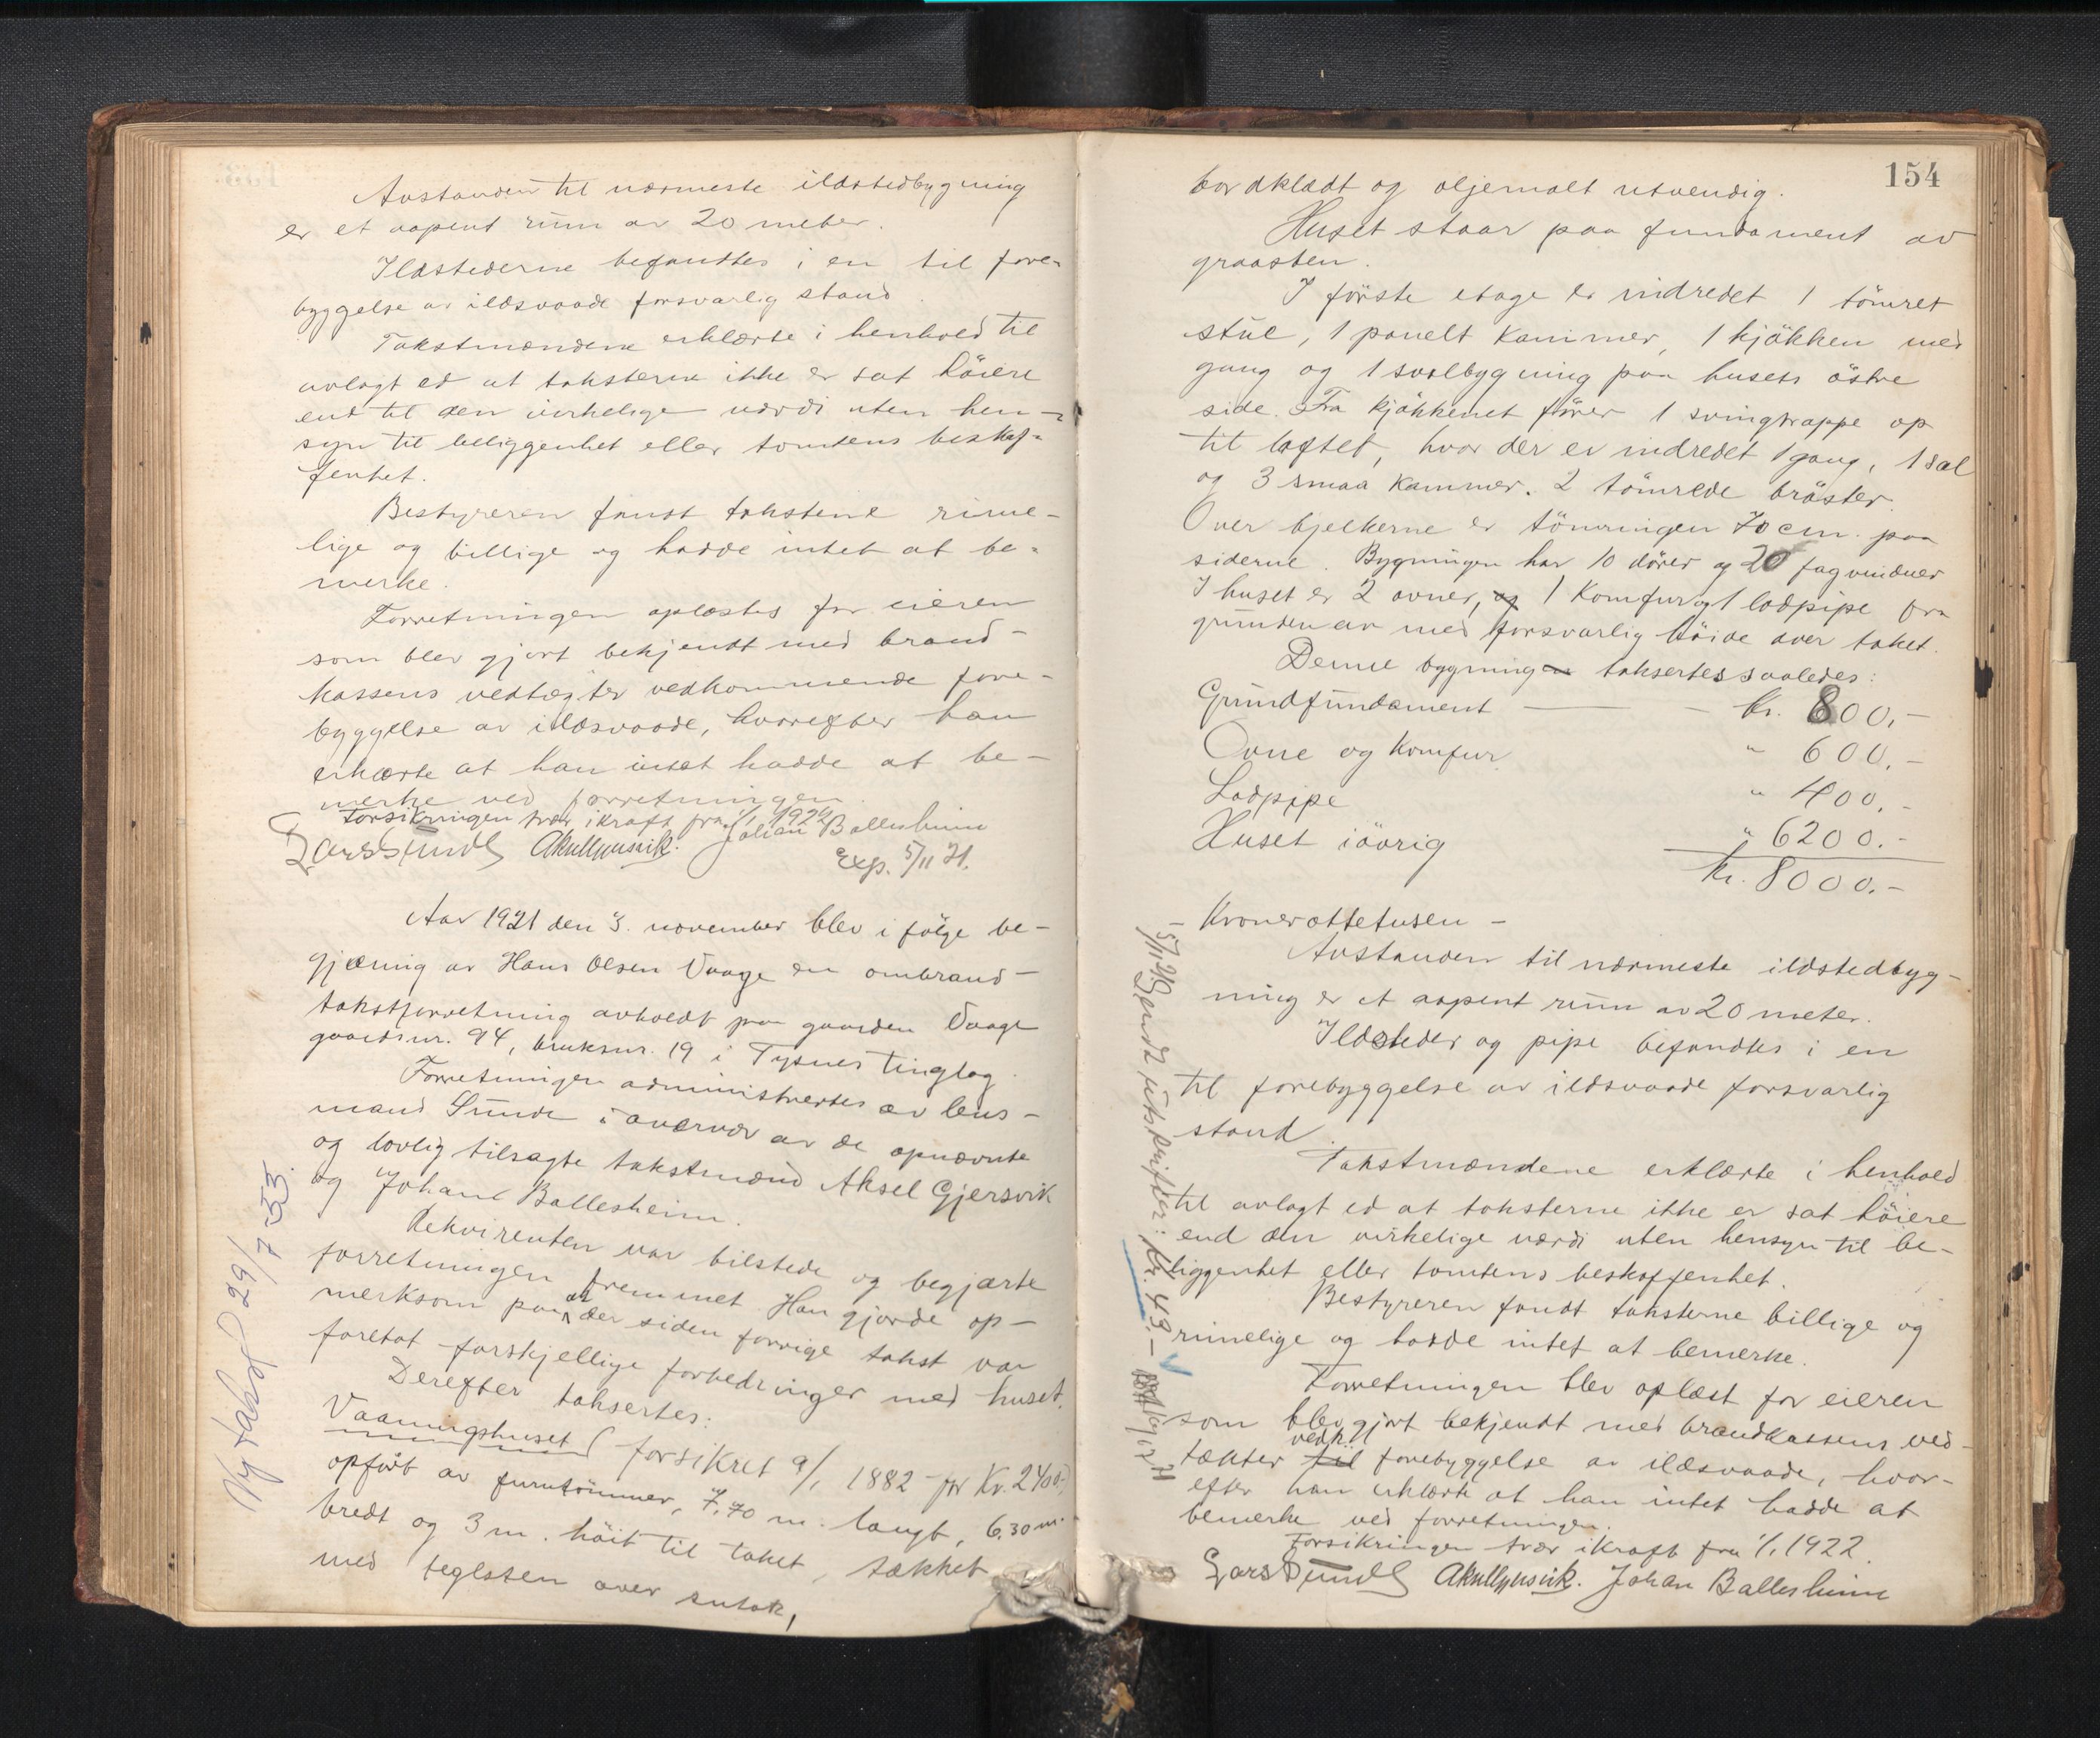 Avstanden til nærmeste ildstedbygning
er et aapent rum av 20 meter.
Ildstederne befandtes i en til fore-
byggelse av ildsvaade forsvarlig stand
Takstmændene erklærte i henhold til
avlagt ed at taksterne ikke er sat höiere
end til den virkelige værdi uten hen-
syn til beliggenhet eller tomtens beskaf-
fenhet.
Bestyreren fandt takstene rime-
lige og billige og hadde intet at be-
merke.
Forretningen oplæstes for eieren
som blev gjort bekjendt med brand-
kassens vedtægter vedkommende fore-
byggelse av ildsvaade, hvorefter han
erklærte at han intet hadde at be-
merke ved forretningen
Forsikringen trær ikraft fra 1/1 1922
Lars Sunde Johan Ballesheim
Exp. 5/11 21.
Aar 1921 den 3. november blev i fölge be-
gjæring av Hans Olsen Vaage en ombrand-
takstforretning avholdt paa gaarden Vaage
gaardsnr. 94, bruksnr. 19 i Tysnes tinglag.
Forretningen administrertes av lens-
mand Sunde i overvær av de opnævnte
og lovlig tilsagte takstmænd Aksel Gjersvik
og Johan Ballesheim.
Rekvirenten var tilstede og begjærte
forretningen fremmet. Han gjorde op-
merksom paa at der siden forrige takst var
foretat forskjellige forbedringer med huset.
Derefter taksertes:
Vaaningshuset (forsikret 9/1 1882 for Kr. 2400.-)
opfört av furutömmer, 7,70 m. langt, 6.30 m.
bredt og 3 m. höit til taket, tækket
med teglsten over sutak,
Ny takst 29/7-33.
154
bordklædt og oljemalt utvendig.
Huset staar paa fundament av
graasten.
I förste etage er indredet 1 tömret
stue, 1 panelt kammer, 1 kjökken med
gang og 1 svalbygning paa husets östre
side. Fra kjökkenet förer 1 svingtrappe op
til loftet, hvor der er indredet 1 gang, 1 sal
og 3 smaa kammer. 2 tömrede bröster.
Over bjelkerne er tömringen 70 cm. paa
siderne. Bygningen har 10 dörer og 20 fag vinduer
I huset er 2 ovner, og 1 Komfur og 1 lodpipe fra
grunden av med forsvarlig höide over taket.
Denne bygningen taksertes saaledes:
Grundfundament — kr. 800.-
Ovne og Komfur " 600.-
Lodpipe " 400.-
Huset iövrig " 6200.-
Kr. 8000.-
- Kroner ottetusen -
Avstanden til nærmeste ildstedbyg-
ning er et aapent rum av 20 meter.
Ildsteder og pipe befandtes i en
til forebyggelse av ildsvaade forsvarlig
stand.
Takstmændene erklærte i henhold
til avlagt ed at taksterne ikke er sat höiere
end den virkelige værdi uten hensyn til be-
liggenhet eller tomtens beskaffenhet.
Bestyreren fandt taksterne billige og
rimelige og hadde intet at bemerke.
Forretningen blev oplæst for eieren
som blev gjort bekjendt med brandkassens ved-
tækter til vedk. forebyggelse av ildsvaade, hvor-
efter han erklærte at han intet hadde at
bemerke ved forretningen.
Forsikringen trær ikraft fra 1/1 1922.
Lars Sunde Johan Ballesheim
5/11 21 Sendt utskrifter: Kr. 43.-